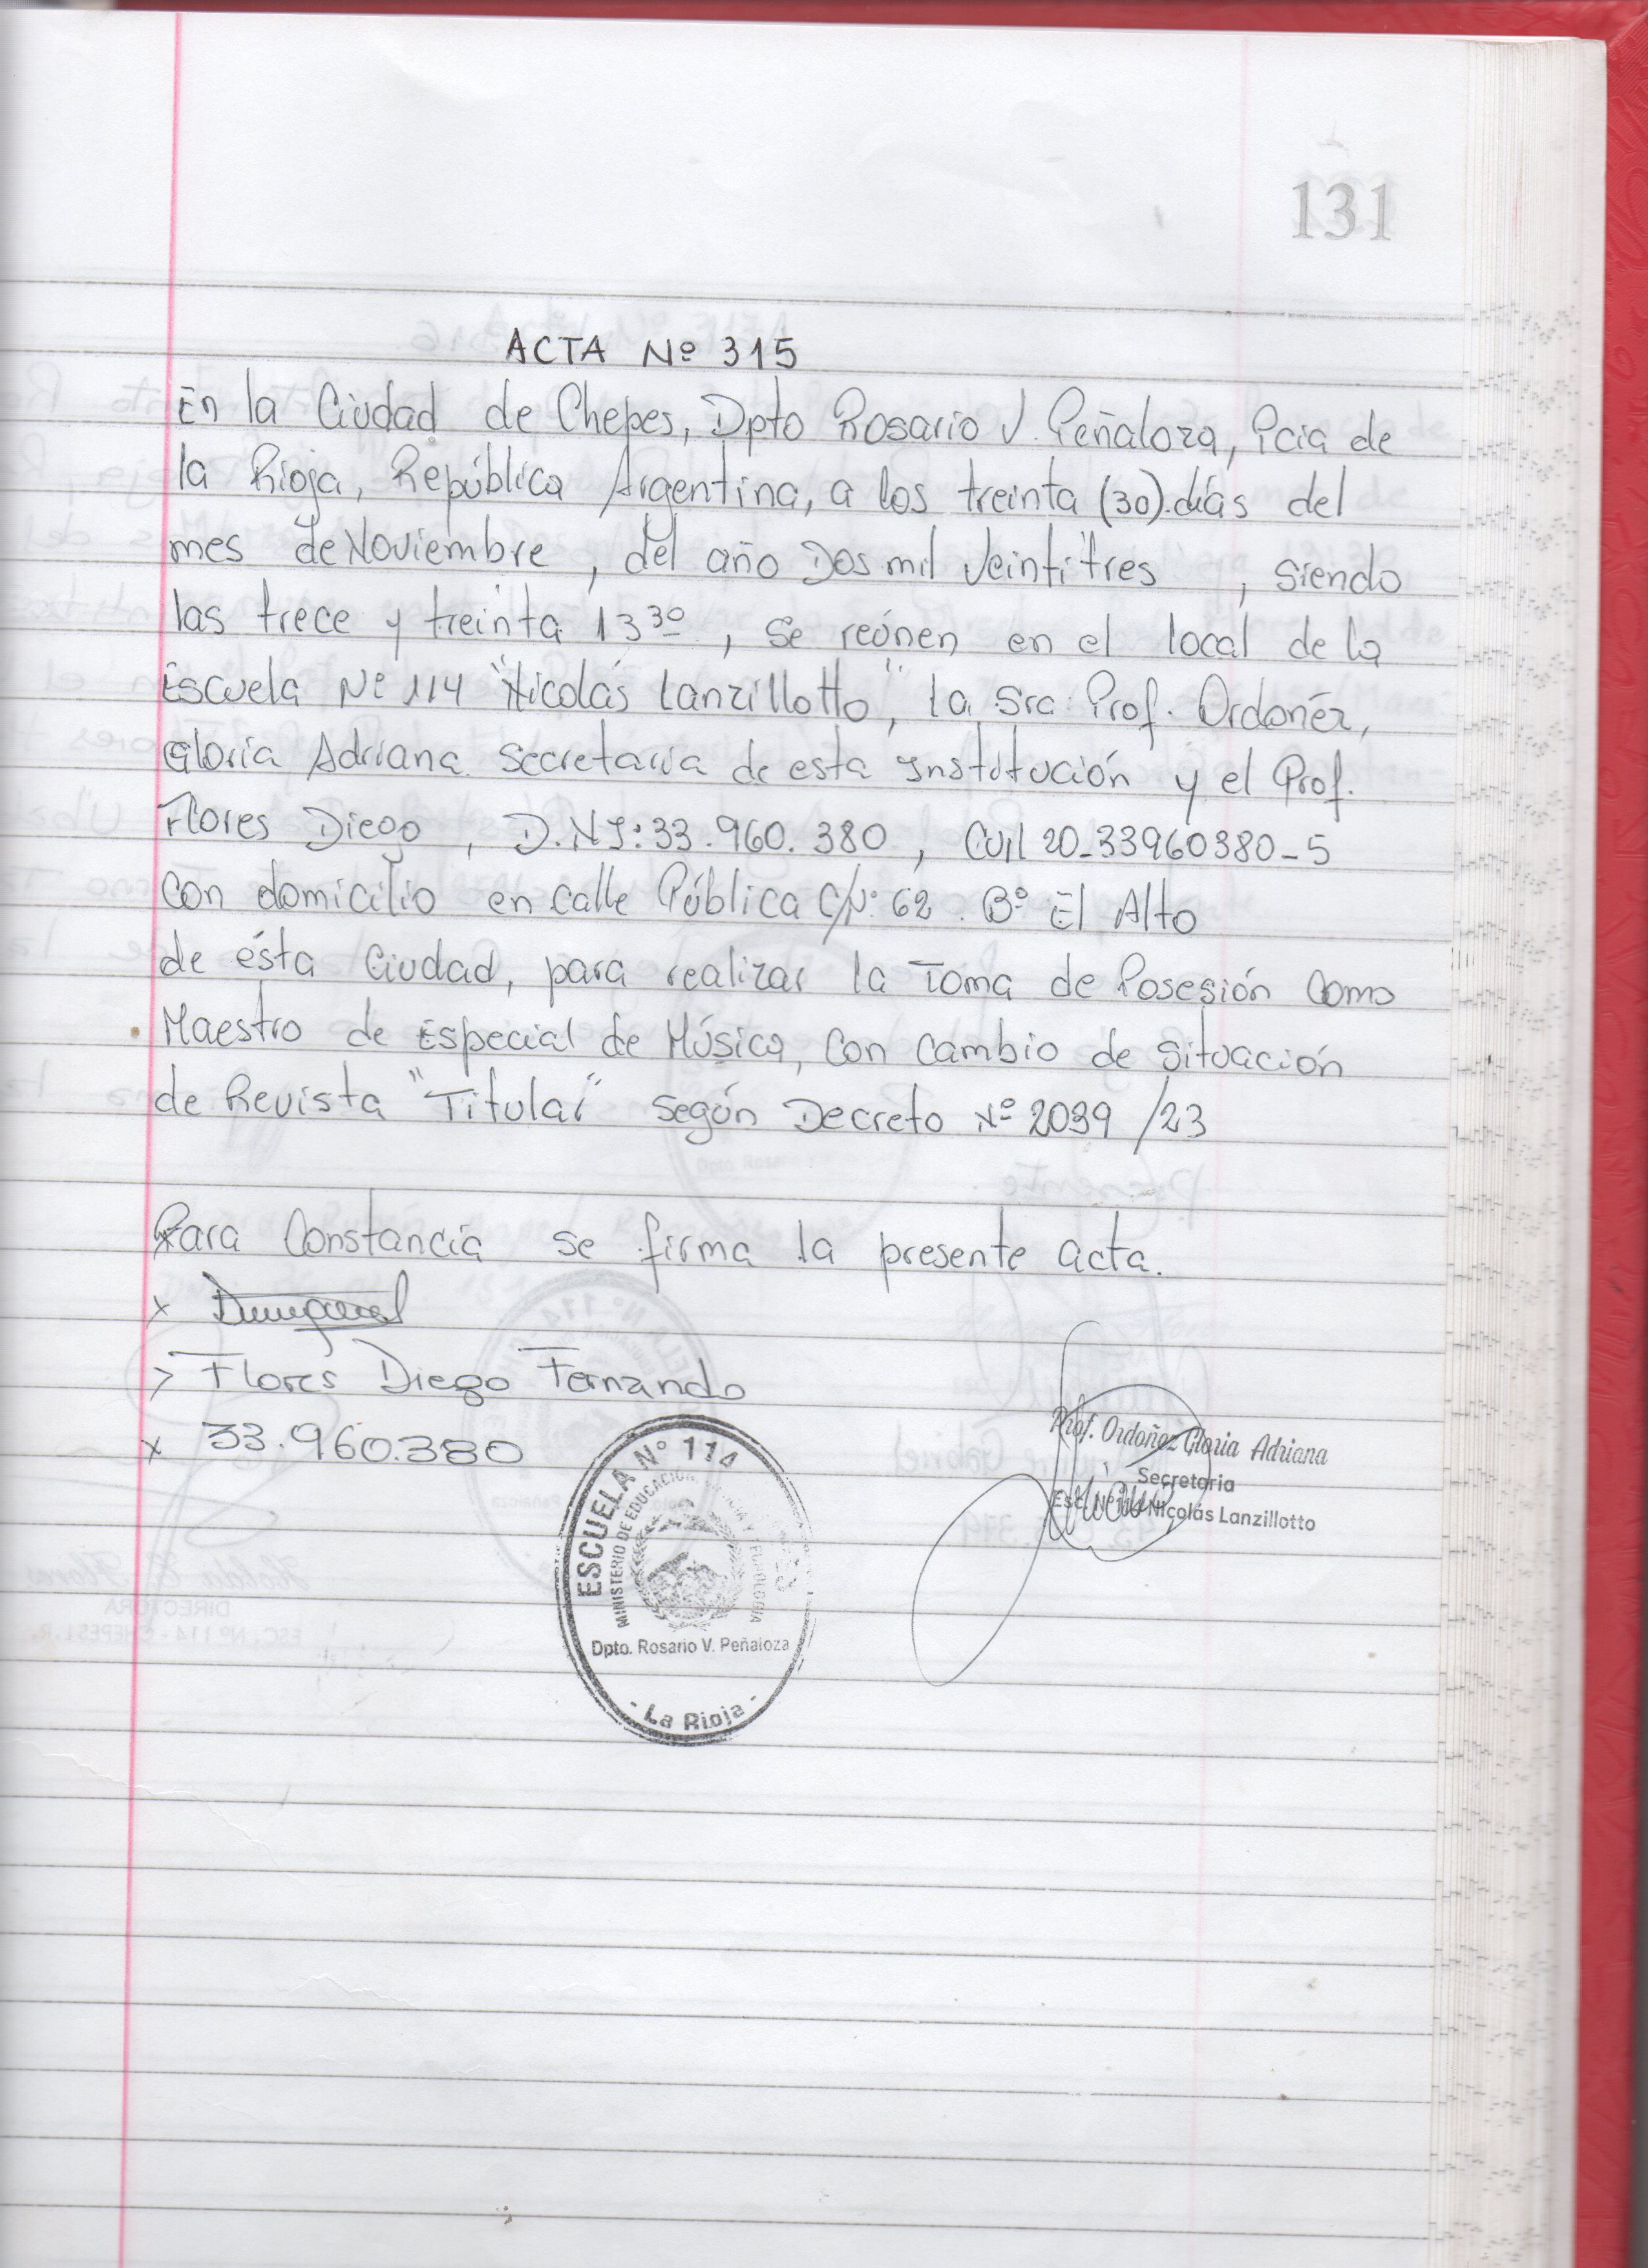 131
ACTA Nº 315
En la Ciudad de Chepes, Dpto Rosario V. Peñaloza, Pcia de
la Rioja, República Argentina, a los treinta (30) días del
mes de Noviembre, del año Dos mil Veintitres, siendo
las trece y treinta 13 30, se reúnen en el local de la
Escuela Nº 114 "Nicolás Lanzillotto", la Sra Prof. Ordoñéz,
Gloria Adriana Secretaria de esta Institución y el Prof.
Flores Diego, D.N.I: 33.960.380, Cuil 20_33960380_5
con domicilio en calle Pública C/Nº 62. Bº El Alto
de ésta Ciudad, para realizar la Toma de Posesión Como
Maestro de Especial de Música, con cambio de Situación
de Revista "Titular" según Decreto Nº 2039 /23
Para Constancia se firma la presente acta.
x
> Flores Diego Fernando
x 33.960.380
ESCUELA Nº 114
MINISTERIO DE EDUCACIÓN
Dpto. Rosario V. Peñaloza
- La Rioja -
Prof. Ordoñez Gloria Adriana
Secretaria
Esc. Nº 114 Nicolás Lanzillotto